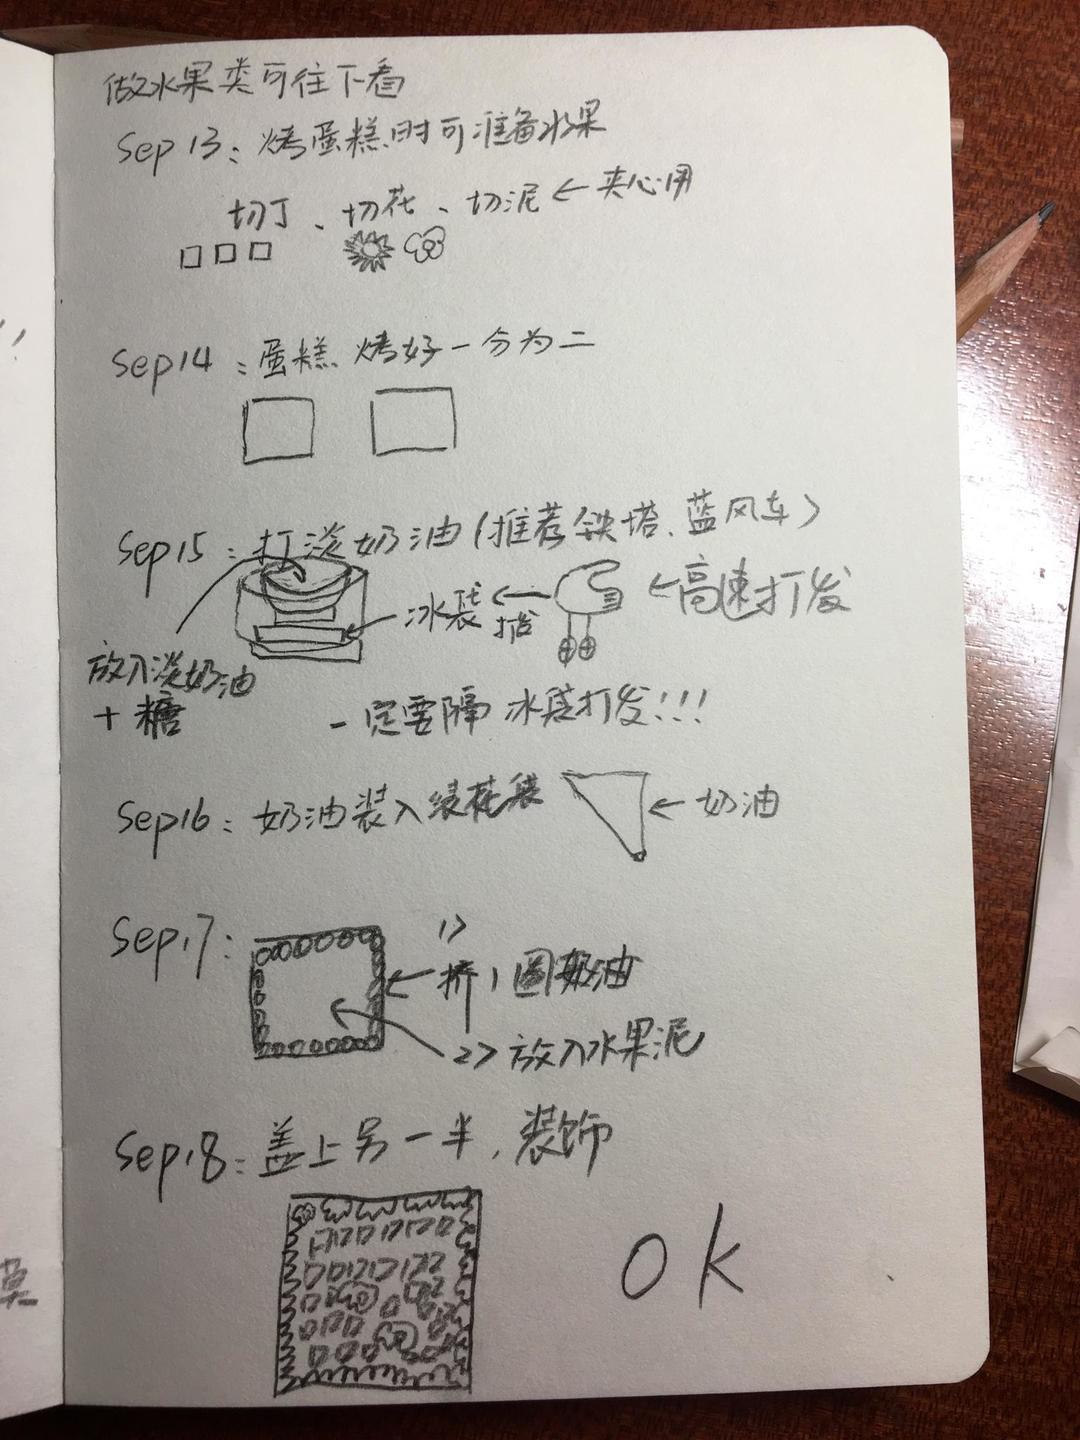 做水果类可往下看
Sep13：烤蛋糕时可准备水果
切丁、切花、切泥←夹心用
Sep14：蛋糕烤好一分为二
Sep15：打淡奶油（推荐铁塔、蓝风车）
冰袋
←高速打发
放入淡奶油
+糖
一定要隔冰袋打发!!!
Sep16：奶油装入裱花袋
←奶油
Sep17：
1>
挤1圈奶油
2>放入水果泥
Sep18：盖上另一半，装饰
OK